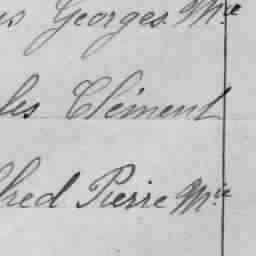 Georges Mie
les Clément
fred Pierre Mie